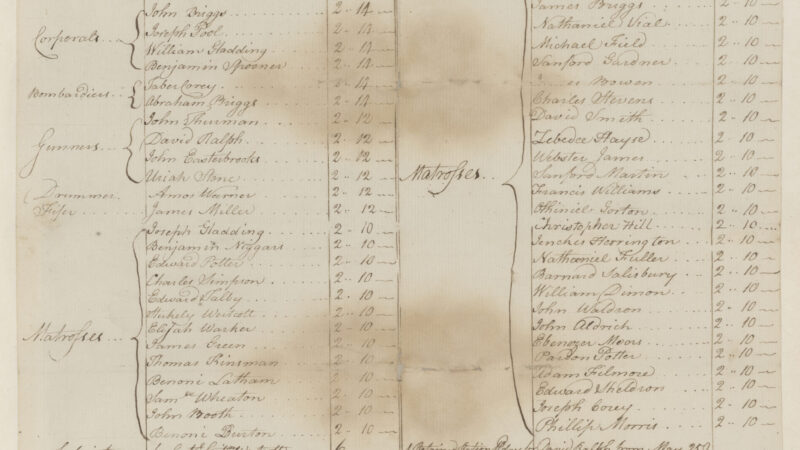 Corporals
John Briggs 2 .. 14
Joseph Pool 2 .. 14
William Gladding 2 .. 14
Benjamin Spooner 2 .. 14
Bombardiers
Taber Corey 2 .. 14
Abraham Briggs 2 .. 14
Gunners
John Thurman 2 .. 12
David Ralph 2 .. 12
John Easterbrooks 2 .. 12
Uriah Stone 2 .. 12
Drummer Amos Warner 2 .. 12
Fifer James Miller 2 .. 12
Matrosses
Joseph Gladding 2 .. 10
Benjamin Niggars 2 .. 10
Edward Potter 2 .. 10
Charles Simpson 2 .. 10
Edward Talby 2 .. 10
Westcott 2 .. 10
Elijah Warker 2 .. 10
James Green 2 .. 10
Thomas Kinsman 2 .. 10
Benoni Latham 2 .. 10
Saml Wheaton 2 .. 10
John Booth 2 .. 10
Benoni Burton 2 .. 10
Matrosses
James Briggs 2 .. 10
Nathaniel Vial 2 .. 10
Michael Field 2 .. 10
Sanford Gardner 2 .. 10
Bowen 2 .. 10
Charles Stevens 2 .. 10
David Smith 2 .. 10
Zebedee Hayse 2 .. 10
Webster James 2 .. 10
Sanford Martin 2 .. 10
Francis Williams 2 .. 10
Ethiniel Gorton 2 .. 10
Christopher Hill 2 .. 10
Jenches Herrington 2 .. 10
Nathaniel Fuller 2 .. 10
Barnard Salisbury 2 .. 10
William Dimon 2 .. 10
John Waldron 2 .. 10
John Aldrich 2 .. 10
Ebenezer Moors 2 .. 10
Pardon Potter 2 .. 10
Adam Filmore 2 .. 10
Edward Sheldron 2 .. 10
Joseph Corey 2 .. 10
Phillip Morris 2 .. 10
David Ralph from May 25